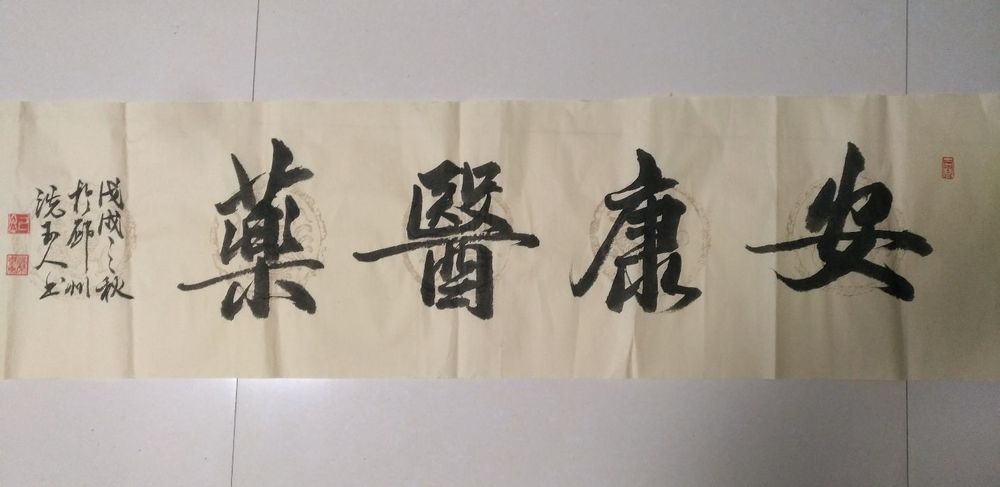 安康醫藥
戊戌之秋
於邱州
洗玉人书